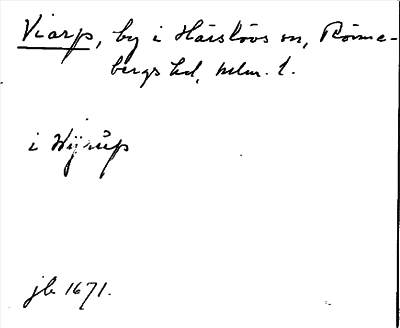 Viarp, by i Härslövs sn, Rönne-
bergs hd, Mlm. l.
i Wijrup
jb 1671.